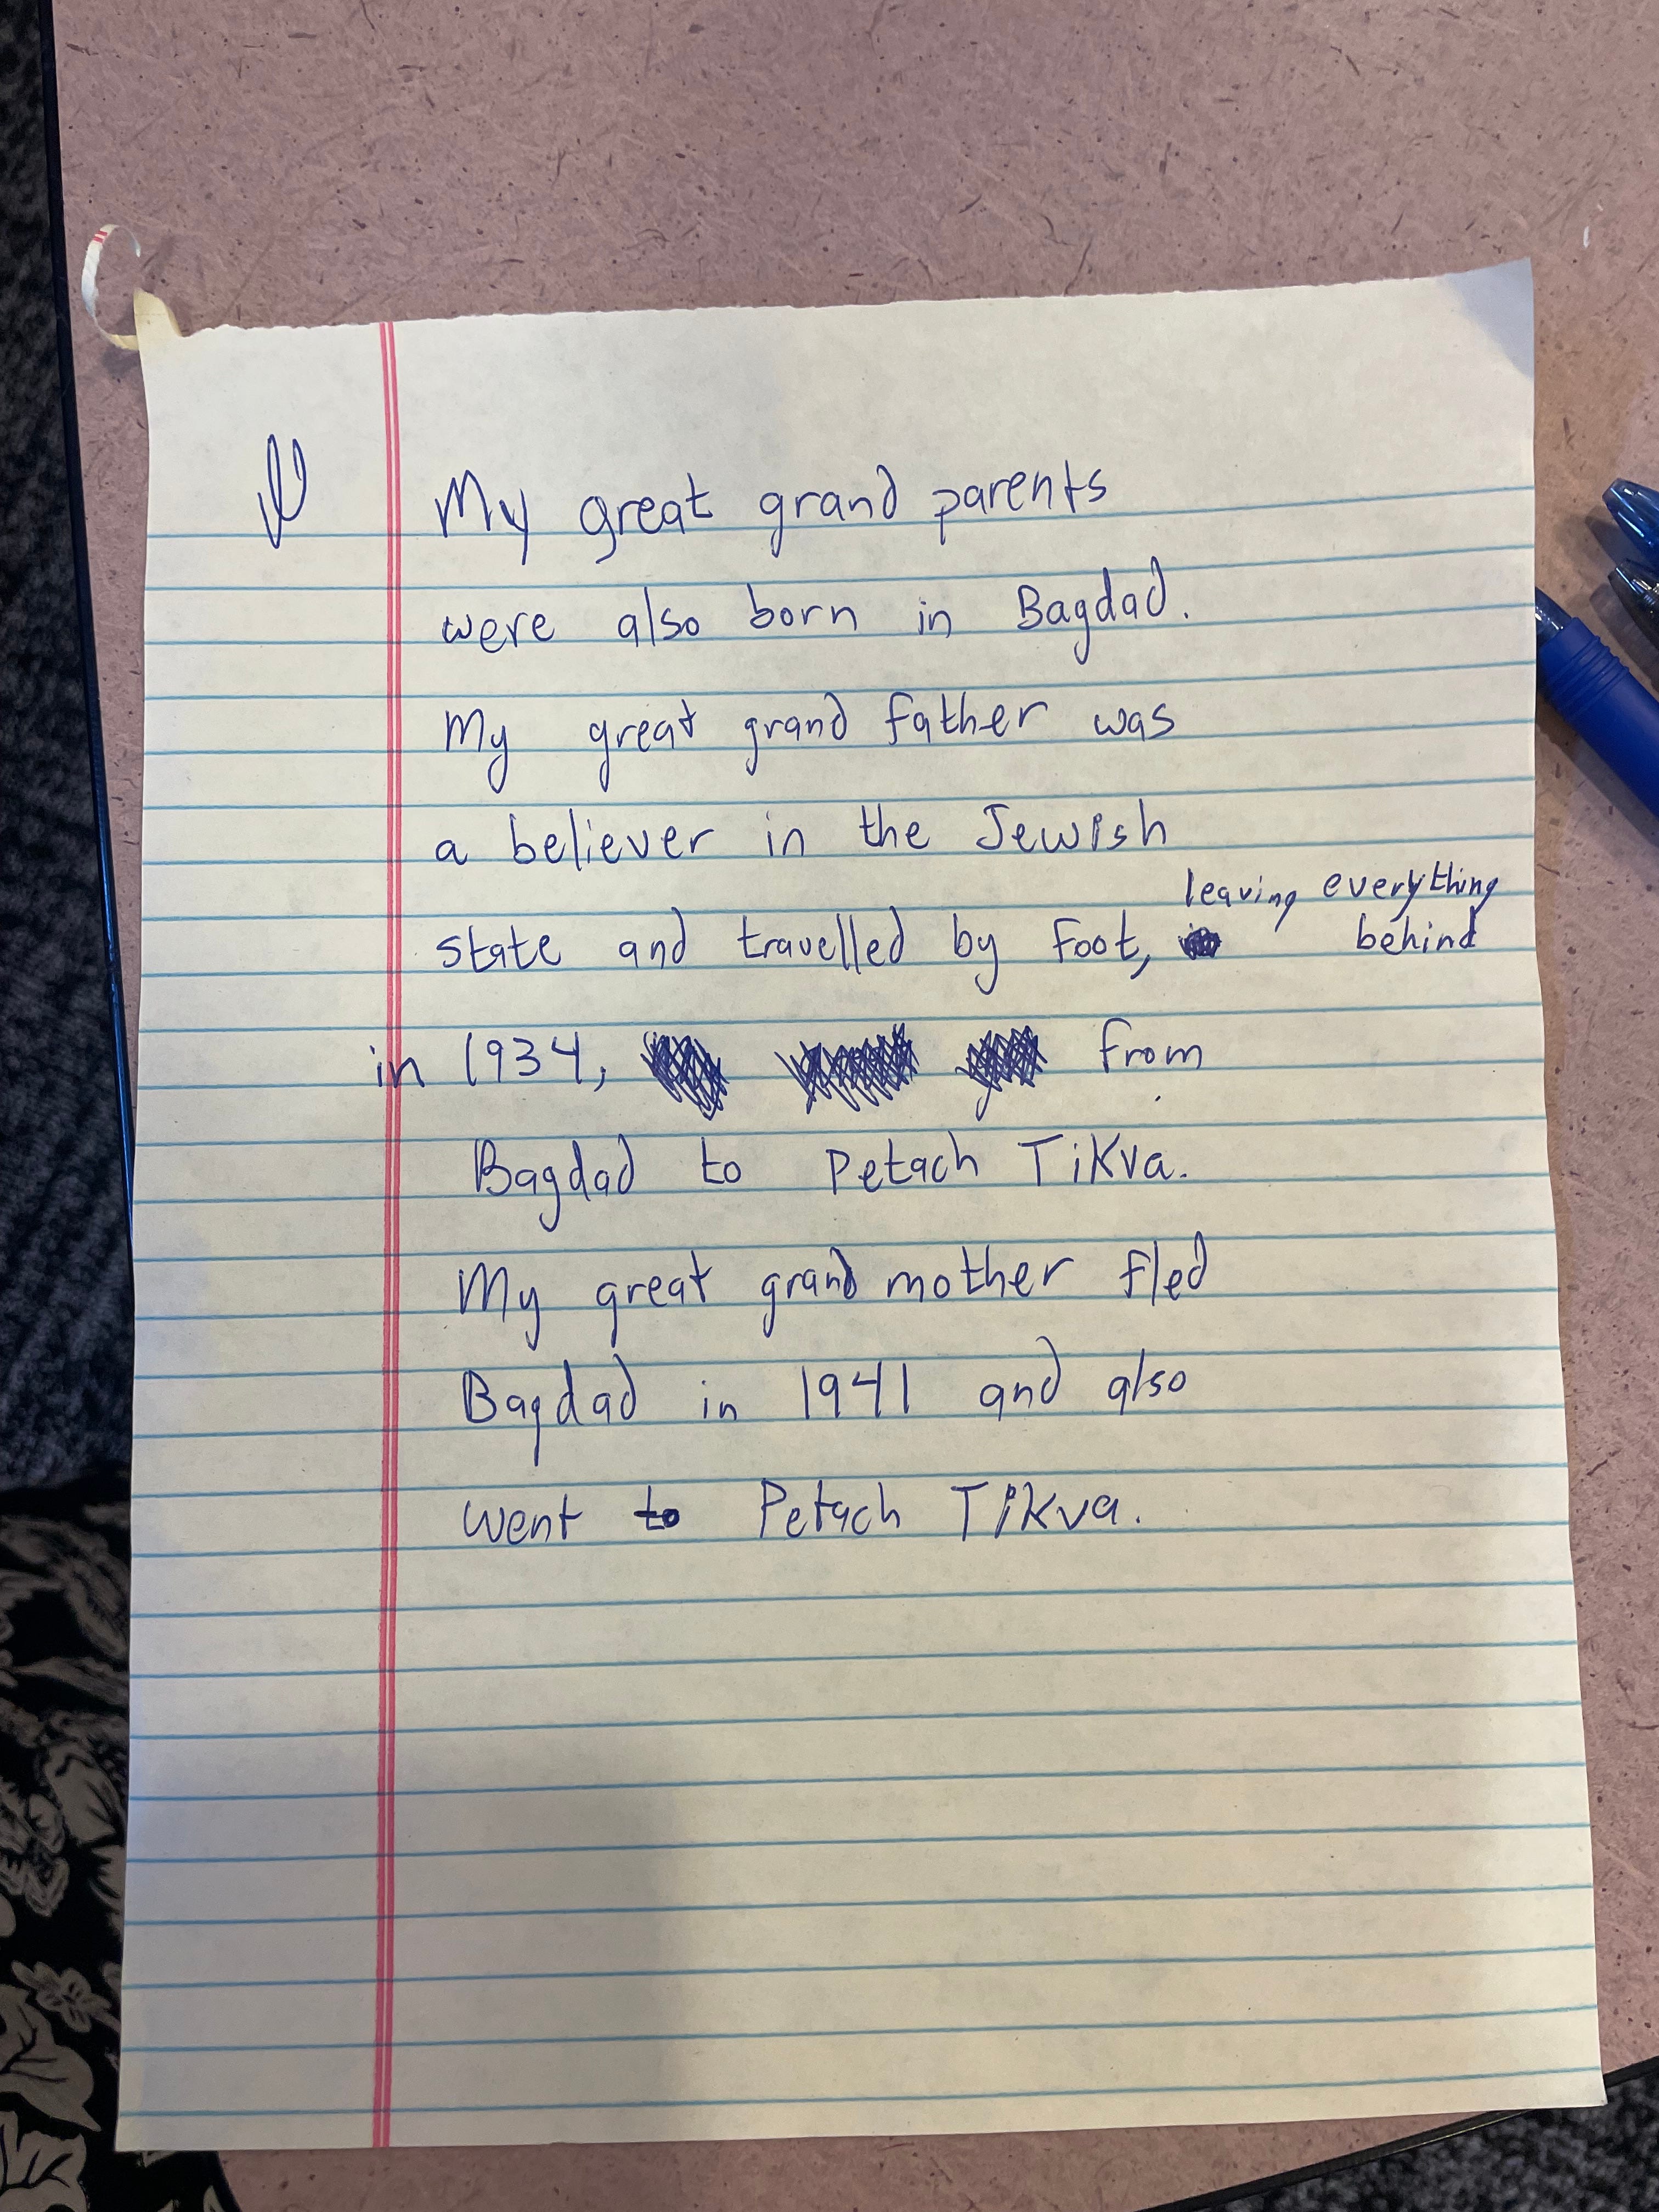 My great grand parents
were also born in Bagdad.
My great grand father was
a believer in the Jewish
leaving everything
state and travelled by foot, behind
in 1934, from
Bagdad to Petach Tikva.
My great grand mother fled
Bagdad in 1941 and also
went to Petach Tikva.